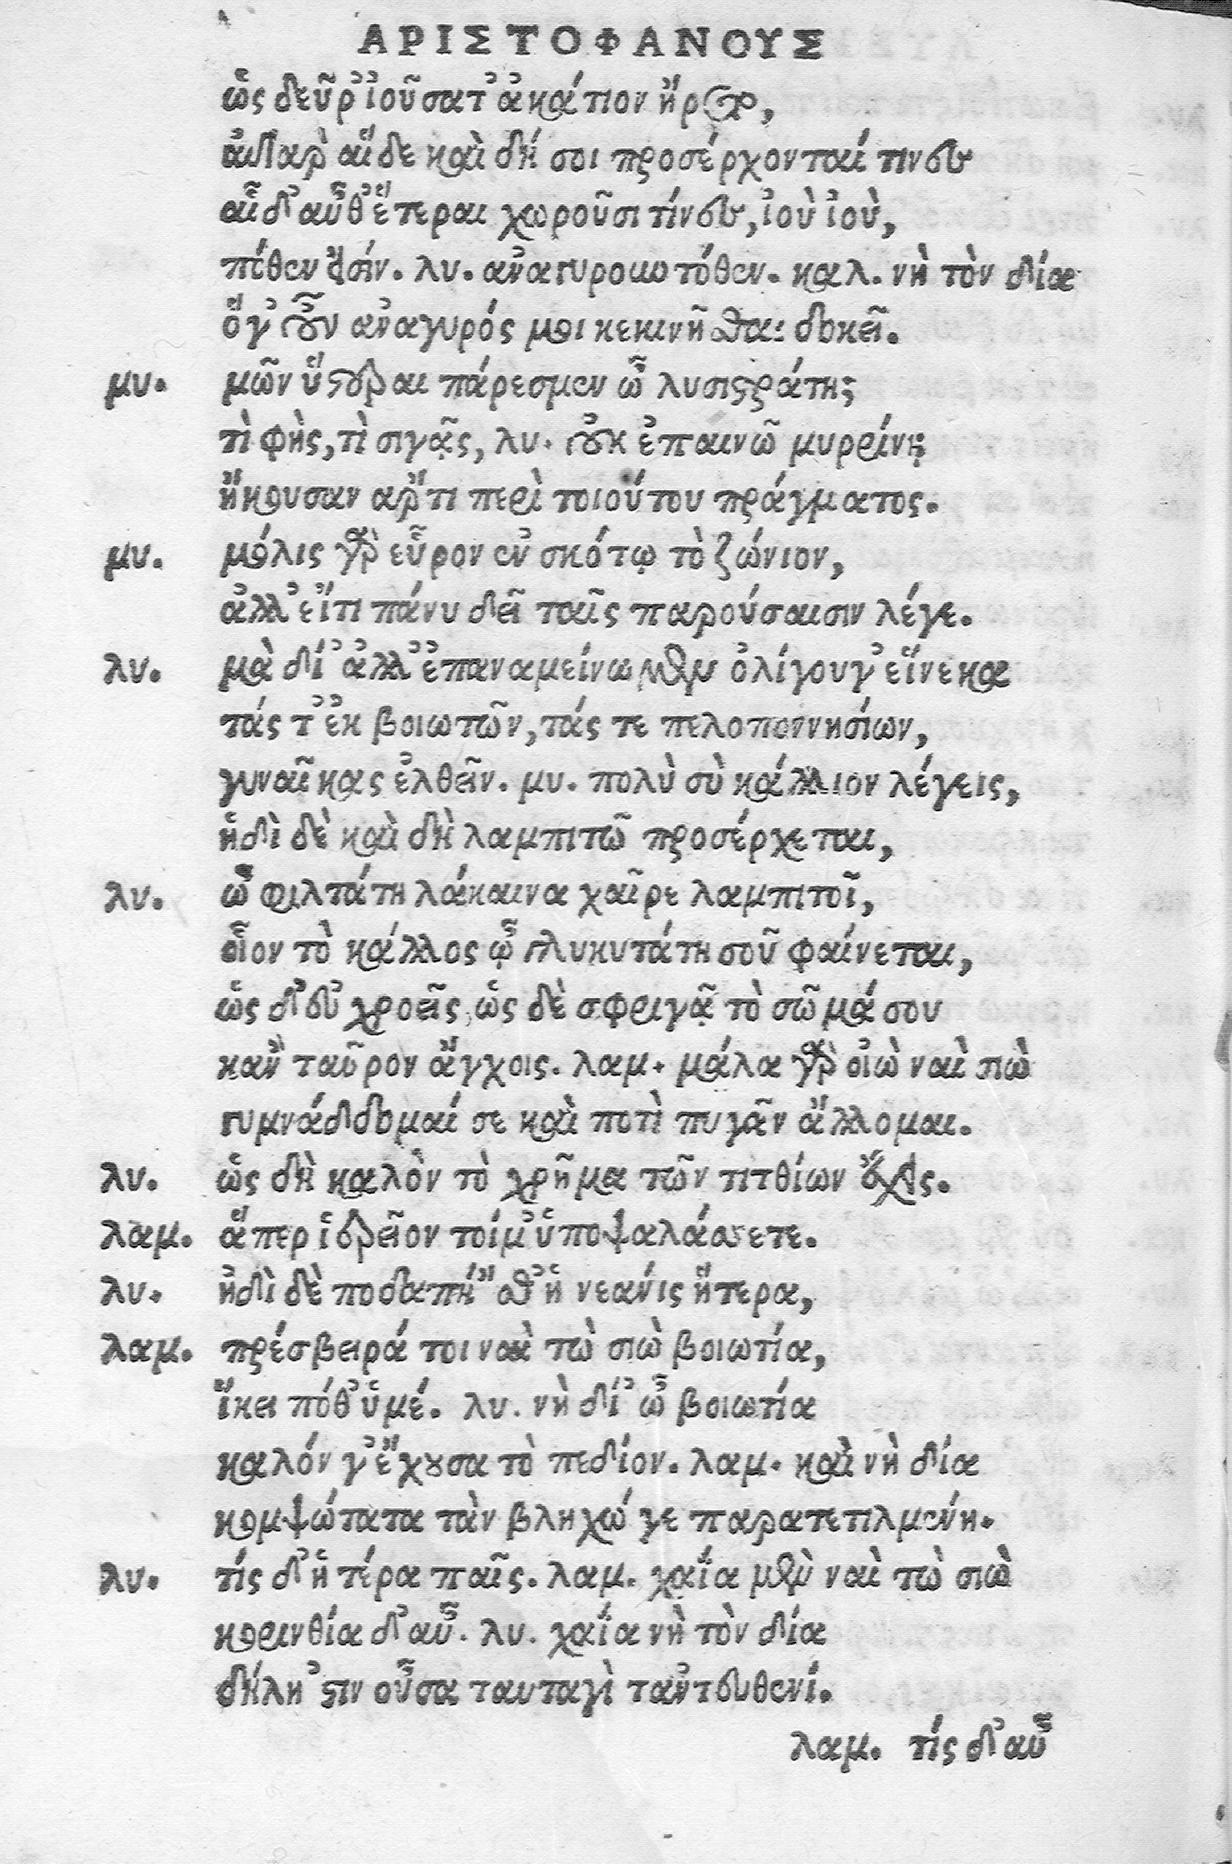 ΑΡΙΣΤΟΦΑΝΟΥΣ
ὡς δεῦρ' ἰοῦσα τ' ἀκάτιον ἤρετο,
ἀτὰρ αἵδε καὶ δή σοι προσέρχονταί τινες
αἷ δ' αὖθ' ἕτεραι χωροῦσι τίνες, ἰοὺ ἰοὺ,
πόθεν εἰσίν. λυ. ἀναγυρουντόθεν. καλ. νὴ τὸν δία
ὅγ' οὖν ἀναγυρός μοι κεκινῆσθαι δοκεῖ.
μυ. μῶν ὕστεραι πάρεσμεν ὦ λυσιστράτη;
τὶ φὴς, τὶ σιγᾷς, λυ. οὐκ ἐπαινῶ μυρρίνη;
ἥκουσαν ἄρτι περὶ τοιούτου πράγματος.
μυ. μόλις γὰρ εὗρον ἐν σκότῳ τὸ ζώνιον,
ἀλλ' εἴτι πάνυ δεῖ ταῖς παρούσαισιν λέγε.
λυ. μὰ δί' ἀλλ' ἐπαναμείνωμεν ὀλίγου γ' εἵνεκα
τάς τ' ἐκ βοιωτῶν, τάς τε πελοποννησίων,
γυναῖκας ἐλθεῖν. μυ. πολὺ σὺ κάλλιον λέγεις,
ἡδὶ δὲ καὶ δὴ λαμπιτὼ προσέρχεται,
λυ. ὦ φιλτάτη λάκαινα χαῖρε λαμπιτοῖ,
οἷον τὸ κάλλος ὦ γλυκυτάτη σοῦ φαίνεται,
ὡς δ' εὐχροεῖς, ὡς δὲ σφριγᾷ τὸ σῶμά σου
κἂν ταῦρον ἄγχοις. λαμ. μάλα γὰρ οἰὼ ναὶ σιὼ
γυμνάδδομαί σε καὶ ποτὶ πυγὰν ἅλλομαι.
λυ. ὡς δὴ καλὸν τὸ χρῆμα τῶν τιτθίων ἔχεις.
λαμ. ἅπερ ἱερεῖον τοί μ' ὑποψαλάσσετε.
λυ. ἡδὶ δὲ ποδαπή 'σθ' ἡ νεάνις ἡτέρα,
λαμ. πρέσβειρά τοι ναὶ τὼ σιὼ βοιωτία,
ἵκει ποθ' ὑμέ. λυ. νὴ δί' ὦ βοιωτία
καλόν γ' ἔχουσα τὸ πεδίον. λαμ. καὶ νὴ δία
κομψώτατα τὰν βληχώ γε παρατετιλμένη.
λυ. τίς δ' ἡ τέρα παῖς. λαμ. χαΐα μὲν ναὶ τὼ σιὼ
κορινθία δ' αὖ. λυ. χαΐα νὴ τὸν δία
δήλη 'στιν οὖσα ταυταγὶ τἀντευθενί.
λαμ. τίς δ' αὖ